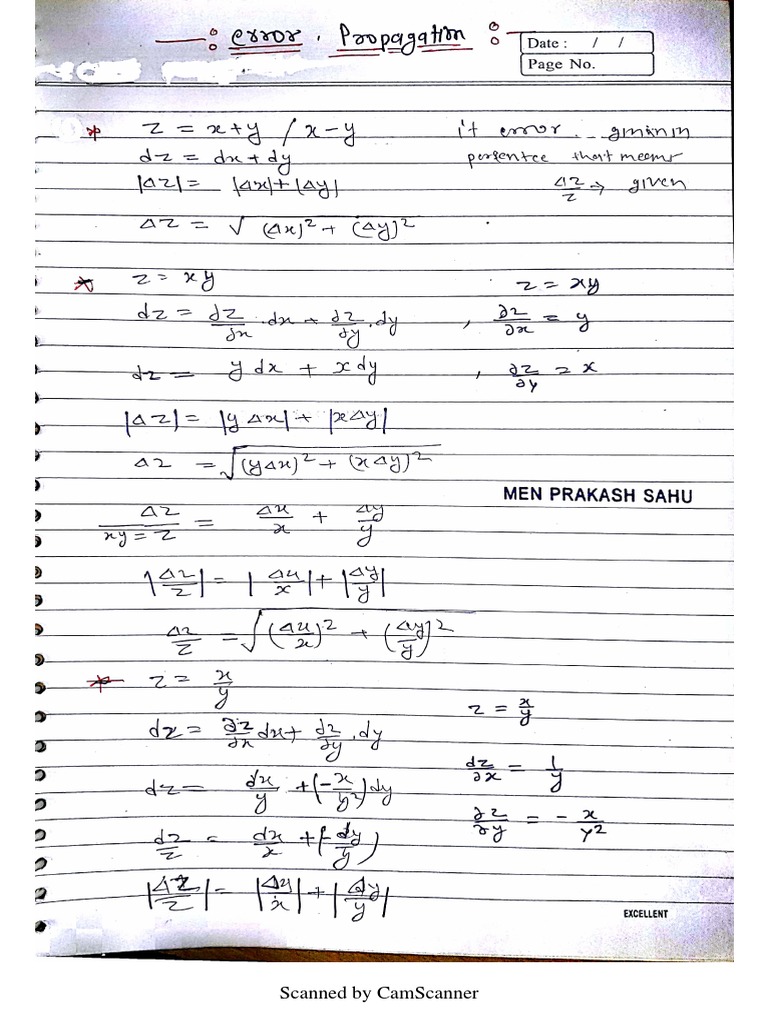 error. Propagation
Date : / /
Page No.
* z = x+y / x-y
if error
dz = dx + dy
that means
|Δz| = |Δx| + |Δy|
Δz/z → given
Δz = √(Δx)² + (Δy)²
* z = xy
z = xy
dz = ∂z/∂x . dx + ∂z/∂y . dy
, ∂z/∂x = y
dz = y dx + x dy
, ∂z/∂y = x
|Δz| = |yΔx| + |xΔy|
Δz = √(yΔx)² + (xΔy)²
MEN PRAKASH SAHU
Δz/xy=z = Δx/x + Δy/y
|Δz/z| = |Δx/x| + |Δy/y|
Δz/z = √(Δx/x)² + (Δy/y)²
* z = x/y
z = x/y
dz = ∂z/∂x dx + ∂z/∂y . dy
dz/∂x = 1/y
dz = dx/y + (-x/y²) dy
∂z/∂y = - x/y²
dz/z = dx/x + (-dy/y)
|Δz/z| = |Δx/x| + |Δy/y|
EXCELLENT
Scanned by CamScanner